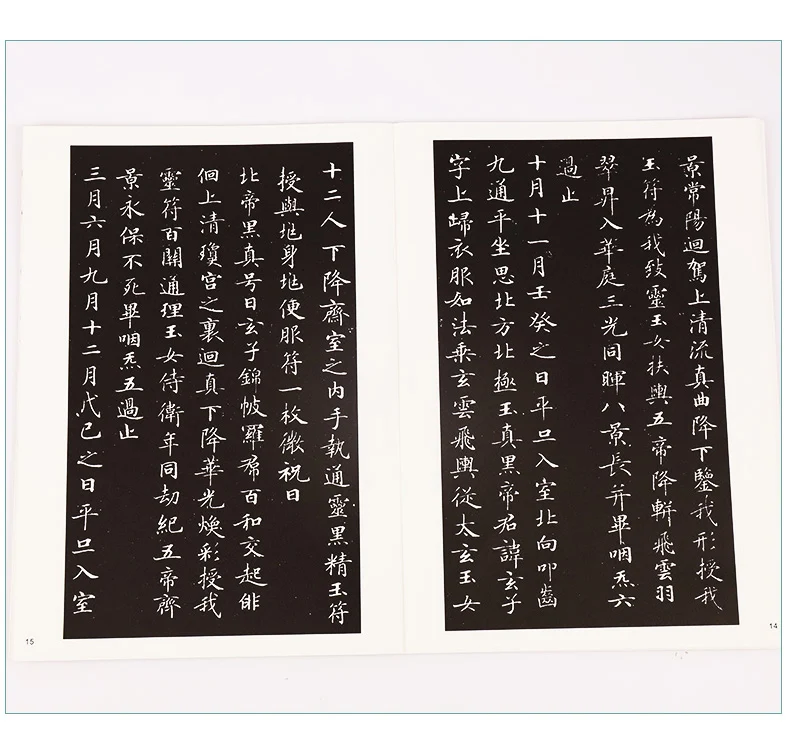 景常陽迴駕上清流真曲降下鑒我形授我
玉符為我致靈玉女扶輿五帝降軿飛雲羽
翠昇入華庭三光同暉八景長并畢咽炁六
過止
十月十一月壬癸之日平旦入室北向叩齒
九通平坐思北方北極玉真黑帝君諱玄子
字上歸衣服如法乘玄雲飛輿從太玄玉女
14
十二人下降齋室之内手執通靈黑精玉符
授與地身地便服符一枚微祝曰
北帝黑真号曰玄子錦帔羅帬百和交起俳
佪上清瓊宫之裏迴真下降華光煥彩授我
靈符百關通理玉女侍衛年同劫紀五帝齊
景永保不死畢咽炁五過止
三月六月九月十二月戊己之日平旦入室
15